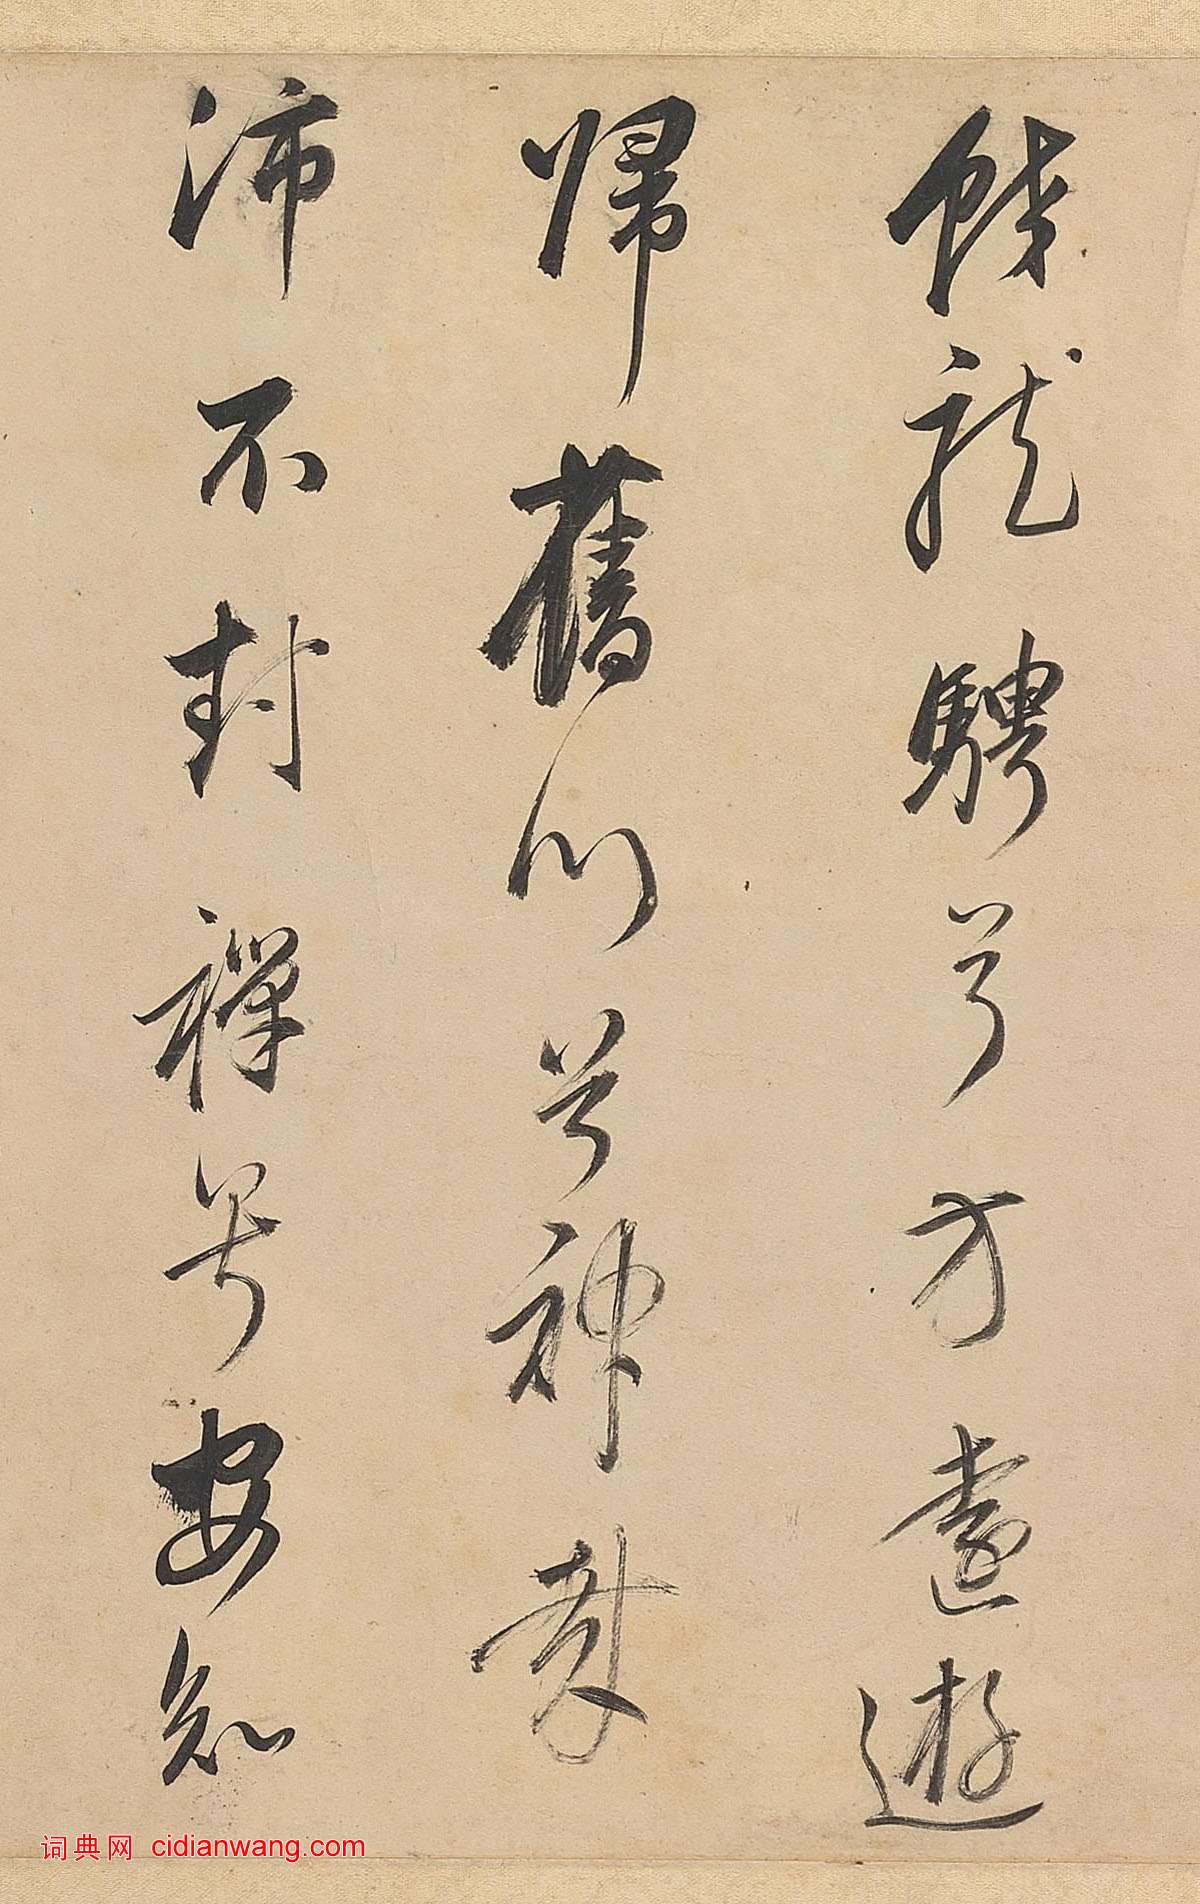 蛟龍騁兮方遠遊
歸舊川兮神哉
沛不封禪兮安知
词典网 cidianwang.com